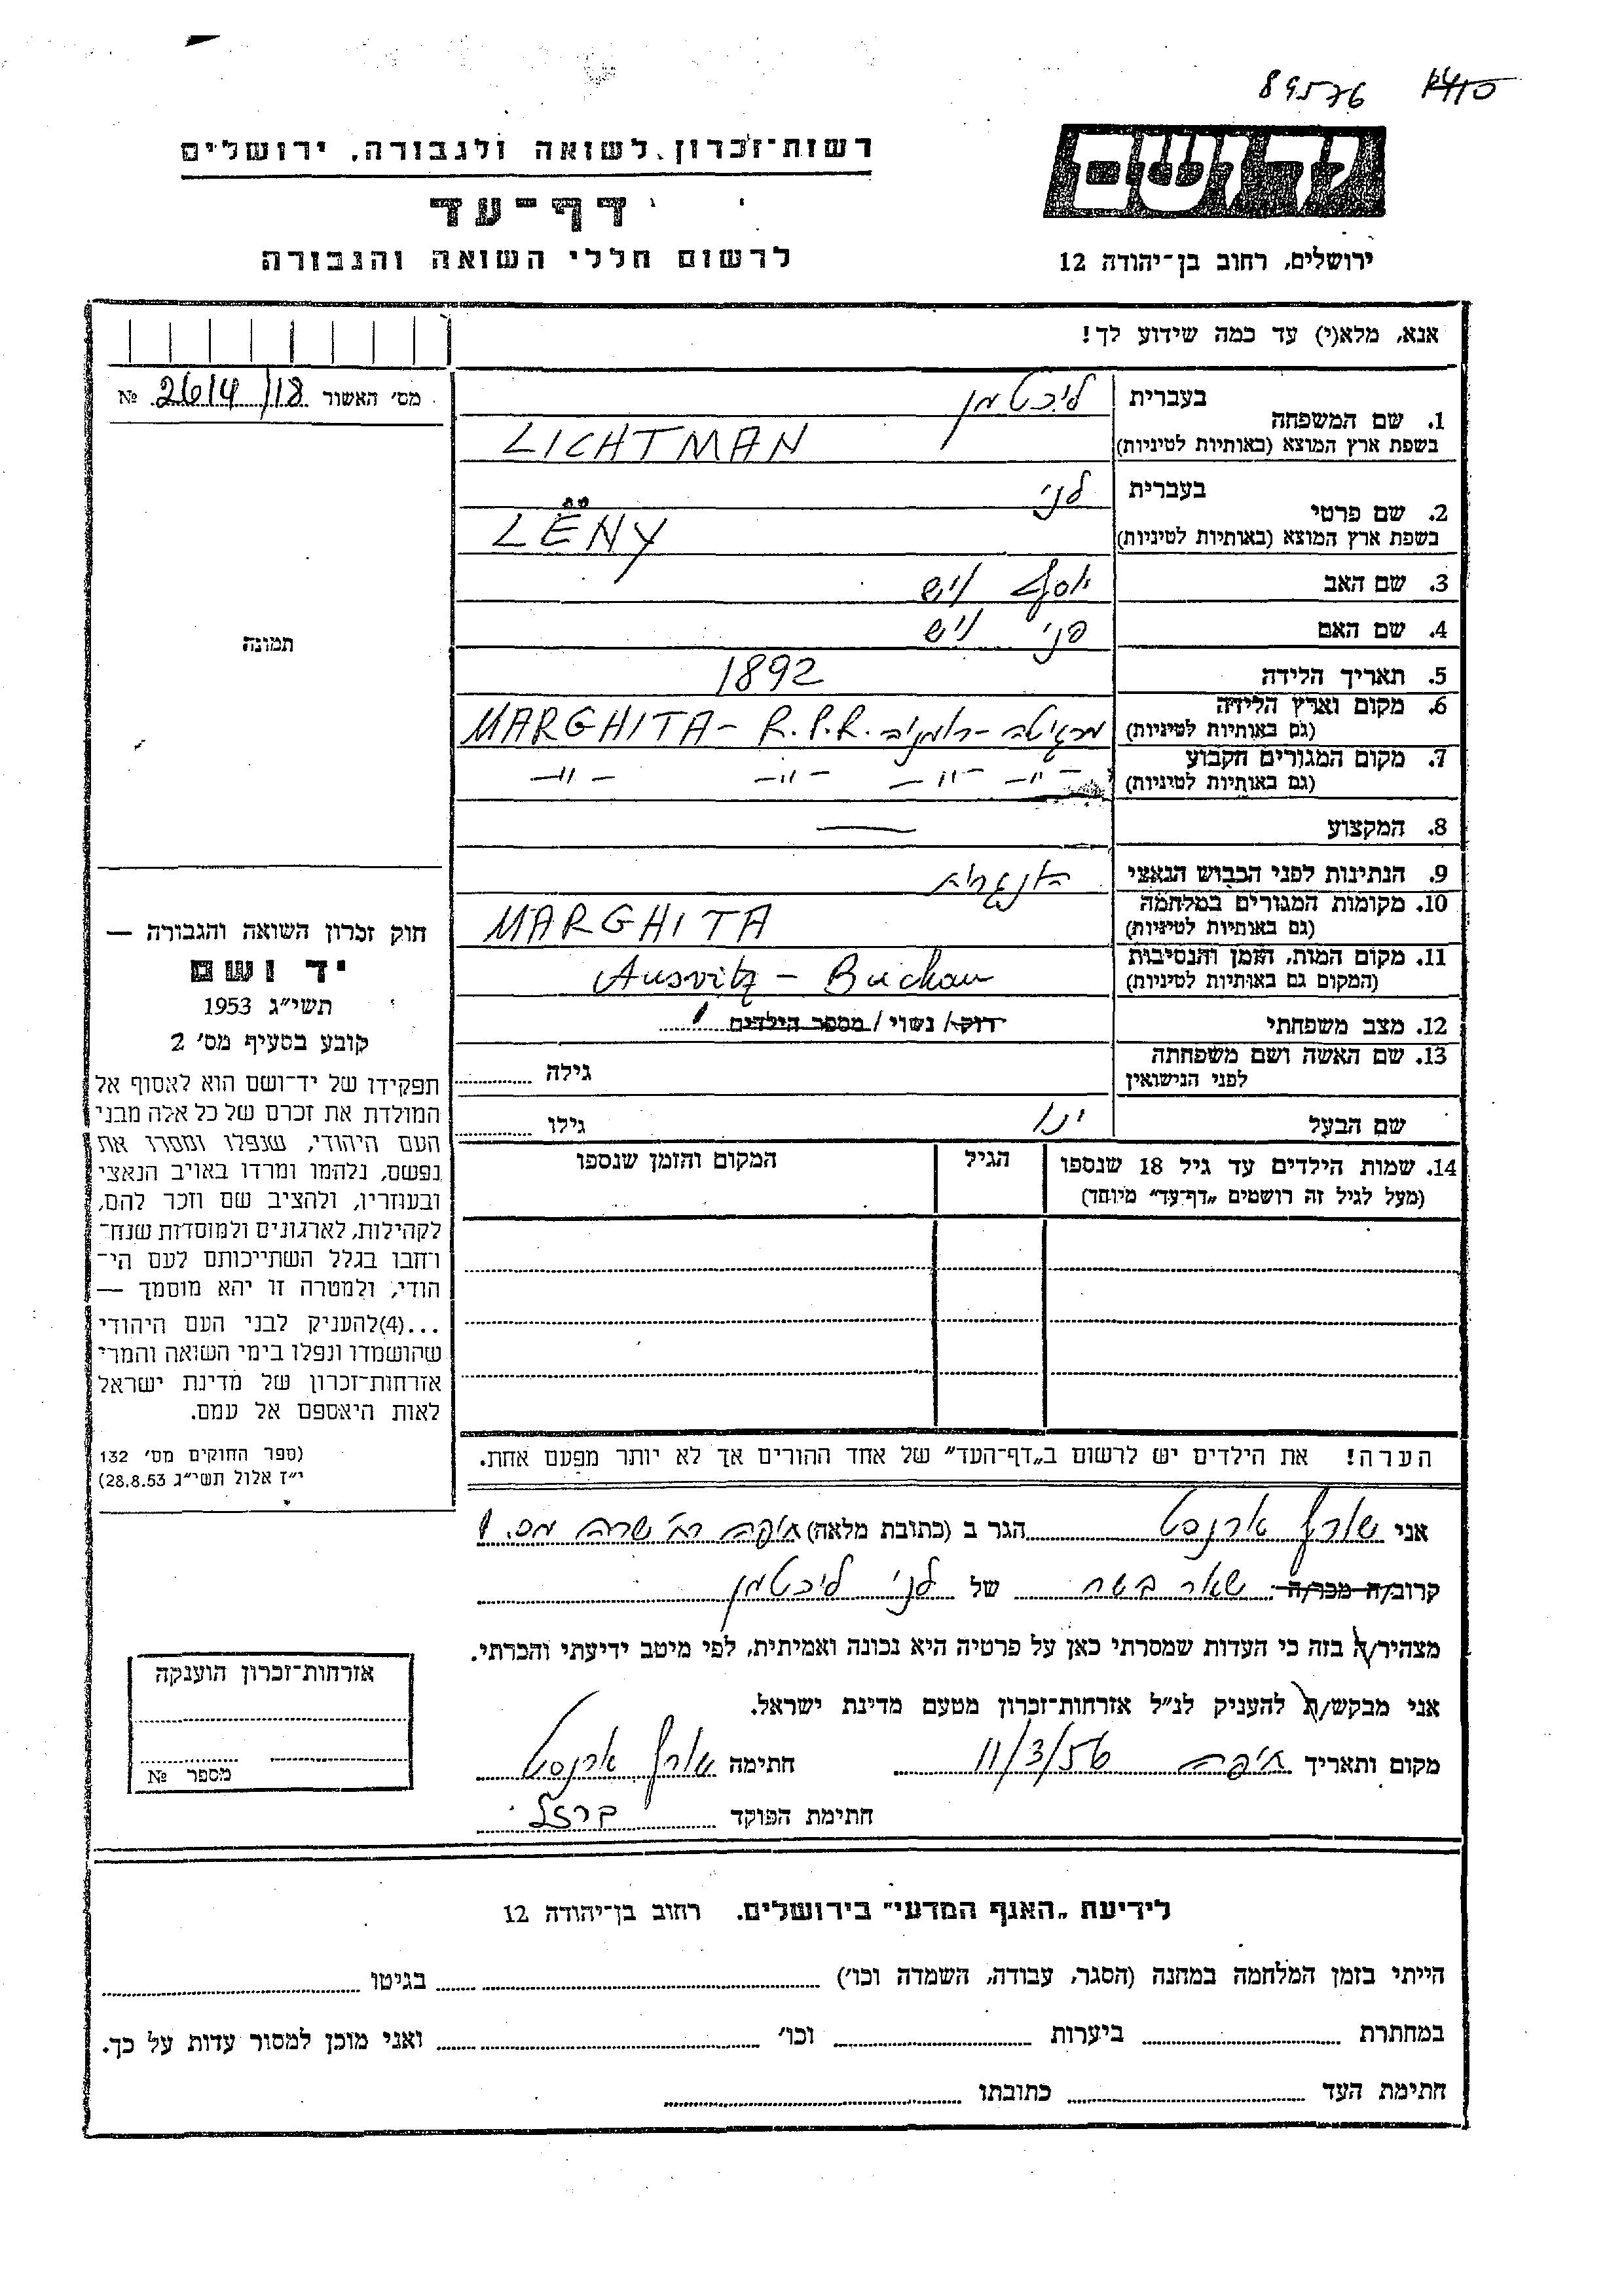 89576
רשות־זכרון לשואה ולגבורה, ירושלים
יד ושם
דף־עד
לרשום חללי השואה והגבורה
ירושלים, רחוב בן־יהודה 12
אנא, מלא(י) עד כמה שידוע לך!
מס׳ האשור 2614/18 №
1. שם המשפחה
בעברית ליכטמן
בשפת ארץ המוצא (באותיות לטיניות) LICHTMAN
2. שם פרטי
בעברית לני
בשפת ארץ המוצא (באותיות לטיניות) LËNY
3. שם האב יוסף וויש
4. שם האם פני וויש
תמונה
5. תאריך הלידה 1892
6. מקום וארץ הלידה
(גם באותיות לטיניות) מרגיטה - רומניה MARGHITA - R.P.R.
7. מקום המגורים הקבוע
(גם באותיות לטיניות) -״- -״- -״- -״-
8. המקצוע —
9. הנתינות לפני הכבוש הנאצי הונגרית
10. מקומות המגורים במלחמה
(גם באותיות לטיניות) MARGHITA
11. מקום המות, הזמן והנסיבות
(המקום גם באותיות לטיניות) Ausvitz - Buckau
12. מצב משפחתי רוק/ נשוי/ מספר הילדים 1
13. שם האשה ושם משפחתה
לפני הנישואין
גילה
שם הבעל
גילו
14. שמות הילדים עד גיל 18 שנספו
(מעל לגיל זה רושמים „דף־עד״ מיוחד)
הגיל
המקום והזמן שנספו
הערה! את הילדים יש לרשום ב„דף־העד״ של אחד ההורים אך לא יותר מפעם אחת.
חוק זכרון השואה והגבורה —
יד ושם
תשי״ג 1953
קובע בסעיף מס׳ 2
תפקידו של יד־ושם הוא לאסוף אל
המולדת את זכרם של כל אלה מבני
העם היהודי, שנפלו ומסרו את
נפשם, נלחמו ומרדו באויב הנאצי
ובעוזריו, ולהציב שם וזכר להם,
לקהילות, לארגונים ולמוסדות שנח־
רבו בגלל השתייכותם לעם הי־
הודי, ולמטרה זו יהא מוסמך —
...(4)להעניק לבני העם היהודי
שהושמדו ונפלו בימי השואה והמרי
אזרחות־זכרון של מדינת ישראל
לאות היאספם אל עמם.
(ספר החוקים מס׳ 132
י״ז אלול תשי״ג 28.8.53)
אני שורץ ארנסט הגר ב (כתובת מלאה) חיפה רח׳ שרה מס. 1
קרוב/ה מכר/ה שאר בשר של לני ליכטמן
מצהיר/ה בזה כי העדות שמסרתי כאן על פרטיה היא נכונה ואמיתית, לפי מיטב ידיעתי והכרתי.
אני מבקש/ת להעניק לנ״ל אזרחות־זכרון מטעם מדינת ישראל.
מקום ותאריך חיפה 11/3/56 חתימה שורץ ארנסט
חתימת הפוקד ברזל
אזרחות־זכרון הוענקה
מספר №
לידיעת „האגף המדעי״ בירושלים. רחוב בן־יהודה 12
הייתי בזמן המלחמה במחנה (הסגר, עבודה, השמדה וכו׳) בגיטו
במחתרת ביערות וכו׳ ואני מוכן למסור עדות על כך.
חתימת העד כתובתו